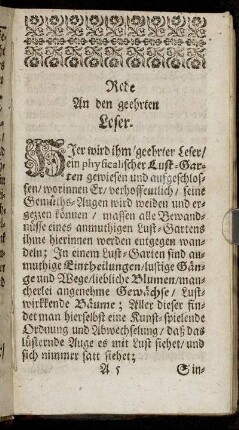 Rede
An den geehrten
Leser.
HIer wird ihm/ geehrter Leser/
ein physicalischer Lust-Gar-
ten gewiesen und aufgeschlos-
sen/ worinnen Er/ verhoffentlich/ seine
Gemüths-Augen wird weiden und er-
gezzen können / massen alle Bewand-
nüsse eines anmuthigen Lust-Gartens
ihme hierinnen werden entgegen wan-
deln; In einem Lust-Garten sind an-
muthige Eintheilungen/ lustige Gän-
ge und Wege/ liebliche Blumen/ man-
cherlei angenehme Gewächse/ Lust-
wirkkende Bäume; Aller dieser fin-
det man hierselbst eine Kunst-spielende
Ordnung und Abwechselung/ daß das
lüsternde Auge es mit Lust siehet/ und
sich nimmer satt siehet;
A 5 Ein-